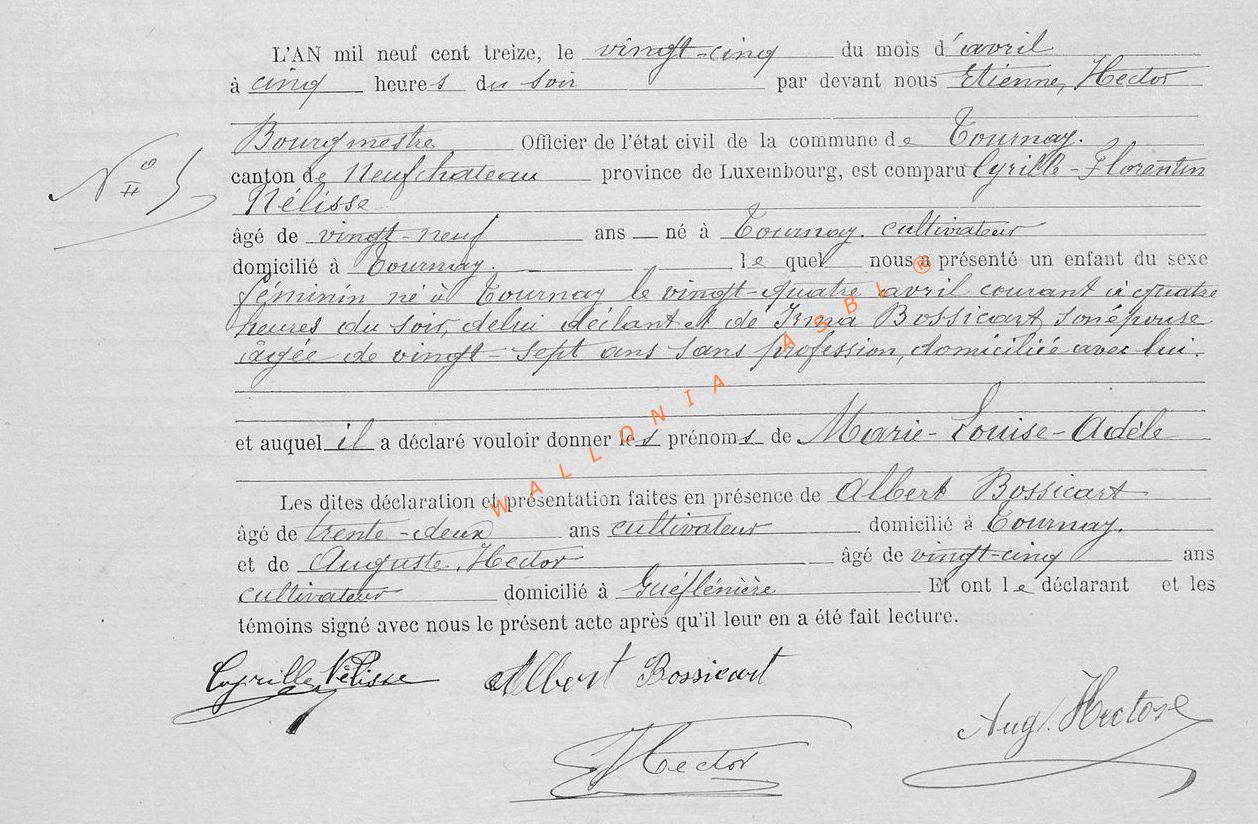 L'AN mil neuf cent treize, le vingt-cinq du mois d'avril
à cinq heures du soir par devant nous Etienne, Hector
Bourgmestre Officier de l'état civil de la commune de Tournay.
canton de Neufchateau province de Luxembourg, est comparu Cyrille-Florentin
N° 5
Nélisse
âgé de vingt-neuf ans né à Tournay. cultivateur
domicilié à Tournay. le quel nous a présenté un enfant du sexe
féminin né à Tournay le vingt-quatre avril courant à quatre
heures du soir, de lui déclant et de Irma Bossicart, son épouse
âgée de vingt-sept ans sans profession, domiciliée avec lui.
et auquel il a déclaré vouloir donner les prénoms de Marie-Louise-Adèle
Les dites déclaration et présentation faites en présence de Albert Bossicart
âgé de trente-deux ans cultivateur domicilié à Tournay.
et de Auguste, Hector âgé de vingt-cinq ans
cultivateur domicilié à Guéflénière Et ont le déclarant et les
témoins signé avec nous le présent acte après qu'il leur en a été fait lecture.
Cyrille Nélisse Albert Bossicart
Aug. Hector
E Hector
WALLONIA ASBL ®